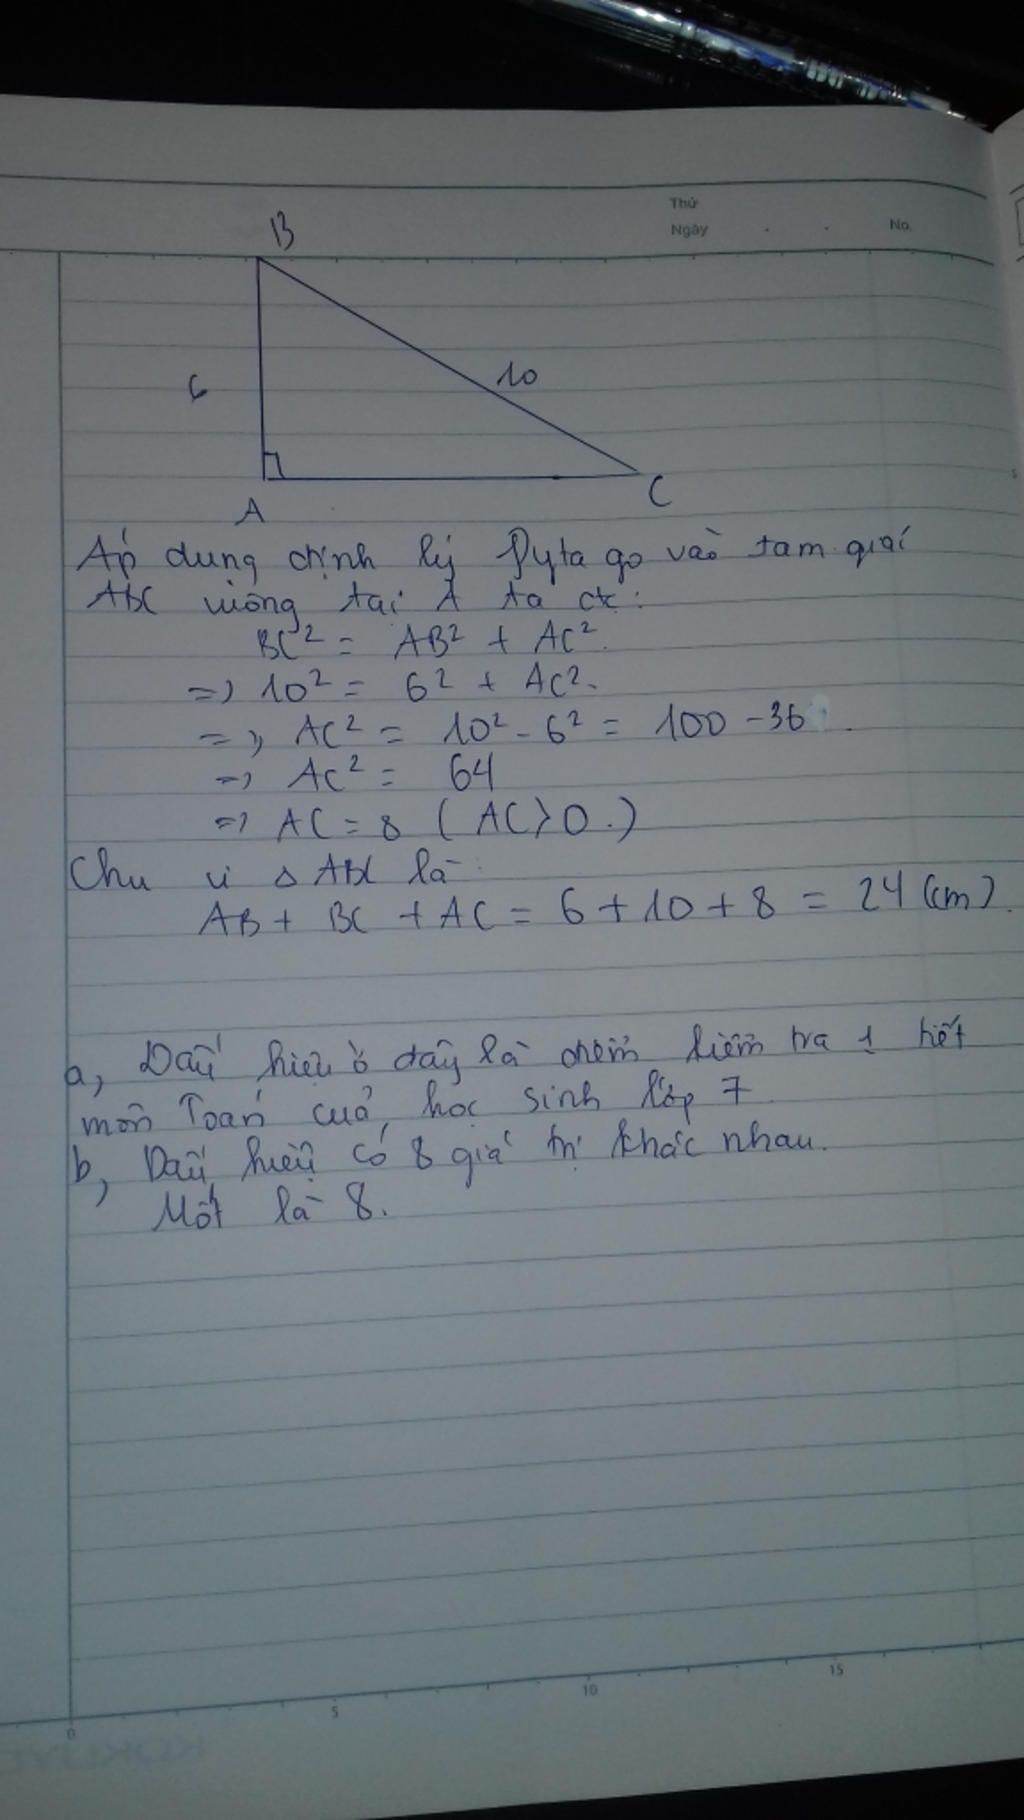 Thứ
Ngày . . No.
B
6
10
A
C
Áp dụng định lý Pytago vào tam giác
ABC vuông tại A ta có:
BC² = AB² + AC².
=> 10² = 6² + AC².
=> AC² = 10² - 6² = 100 - 36.
=> AC² = 64
=> AC = 8 ( AC > 0.)
Chu vi Δ ABC là
AB + BC + AC = 6 + 10 + 8 = 24 (cm).
a, Dấu hiệu ở đây là điểm kiểm tra 1 tiết
môn Toán của học sinh lớp 7
b, Dấu hiệu có 8 giá trị khác nhau.
Mốt là 8.
0 5 10 15
KOKUYO